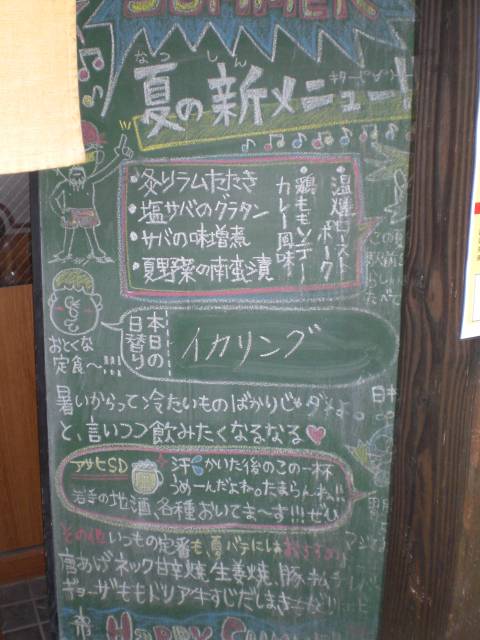 SUMMER
なつ しん
夏の新メニュー!
・炙りラムたたき
・塩サバのグラタン
・サバの味噌煮
・夏野菜の南蛮漬
・鶏ももソテー
カレー風味
・温燻ロースト
ポーク
おとくな
定食〜!!!
本日の
日替り
イカリング
暑いからって冷たいものばかりじゃダメよ。
と、言いつつ飲みたくなるなる♥
アサヒSD
汗かいた後のこの一杯
うめーんだよね。たまらんね!!
岩手の地酒、各種おいてま〜す!!!ぜひ
その他いつもの定番も夏バテにはおすすめ
唐あげネック甘辛焼、生姜焼、豚キムチ
ギョーザももドリア牛すじだしまき
HAPPY